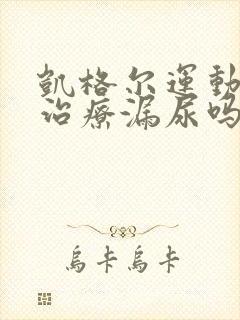 凱格尔運動
治療漏尿吗
烏卡烏卡